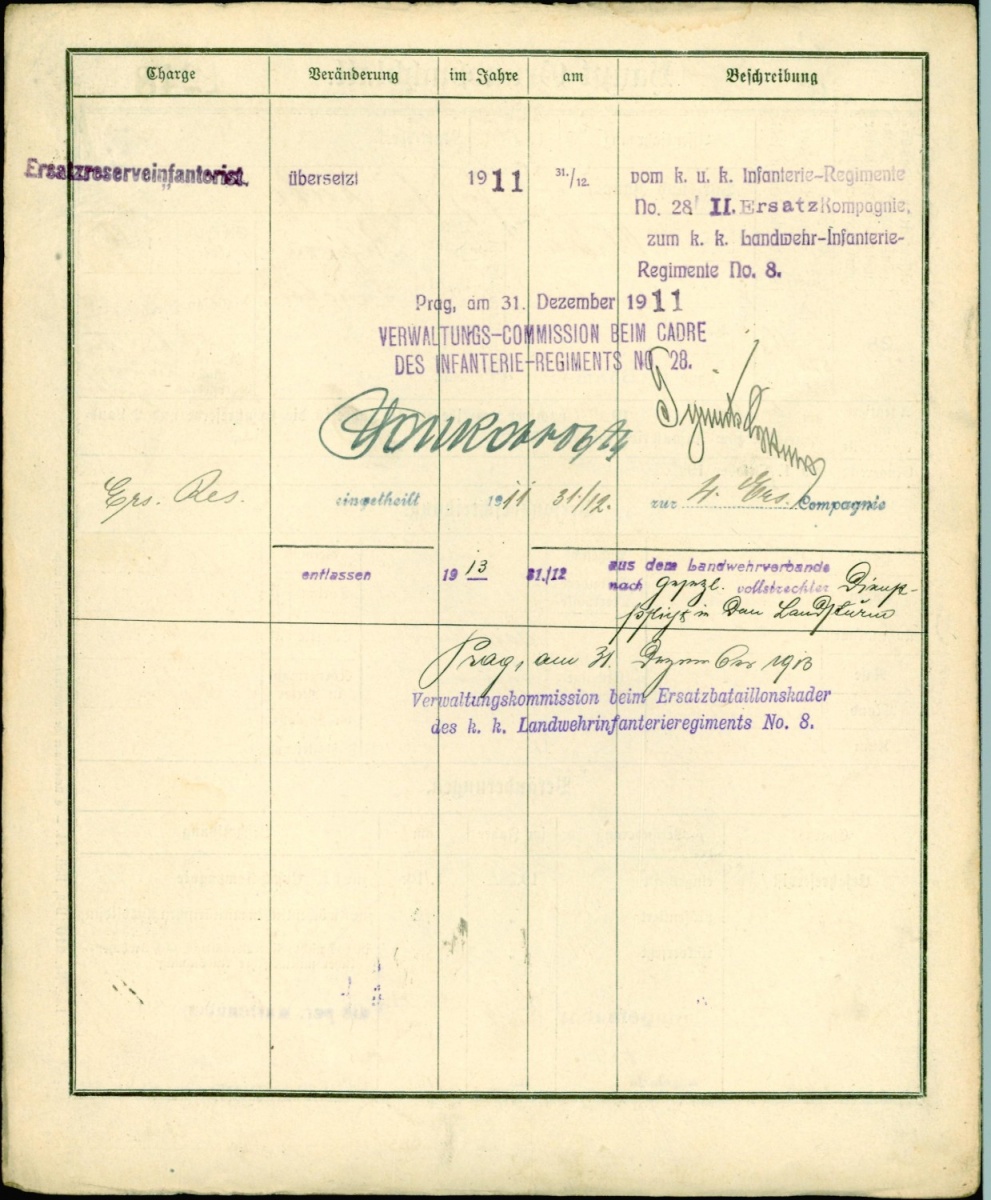 Charge Veränderung im Jahre am Beschreibung
Ersatzreserveinfanterist. übersetzt 1911 31/12. vom k. u. k. Infanterie-Regimente
No. 28/ II. Ersatz Kompagnie,
zum k. k. Landwehr-Infanterie-
Regimente No. 8.
Prag, am 31. Dezember 1911
VERWALTUNGS-COMMISSION BEIM CADRE
DES INFANTERIE-REGIMENTS NO. 28.
Ers. Res. eingetheilt 1911 31/12. zur 4. Ers. Compagnie
entlassen 1913 31./12 aus dem Landwehrverbande
nach gesezl. vollstreckter Dienst-
pflicht in den Landsturm
Prag, am 31. Dezember 1913
Verwaltungskommission beim Ersatzbataillonskader
des k. k. Landwehrinfanterieregiments No. 8.